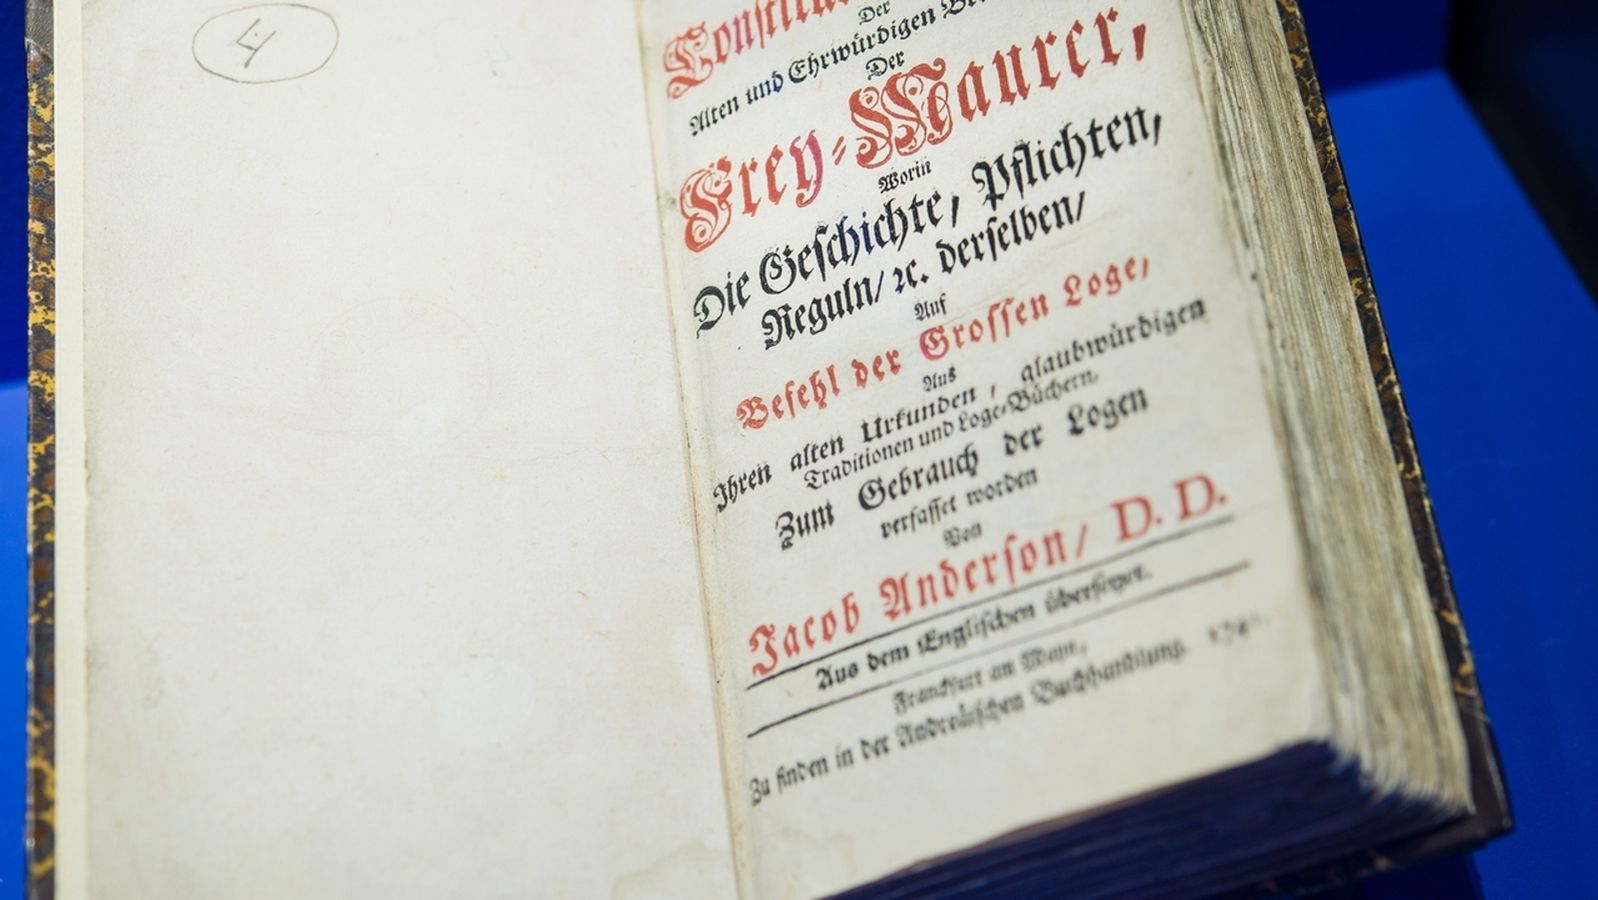 4
Der
Alten und Ehrwürdigen
Der
Frey-Maurer,
Worin
Die Geschichte, Pflichten,
Reguln/ ꝛc. derselben/
Auf
Befehl der Grossen Loge,
Aus
Ihren alten Urkunden, glaubwürdigen
Traditionen und Loge-Büchern,
Zum Gebrauch der Logen
verfasset worden
Von
Jacob Anderson/ D. D.
Aus dem Englischen übersetzet.
Franckfurt am Mayn,
Zu finden in der Andreäischen Buchhandlung.